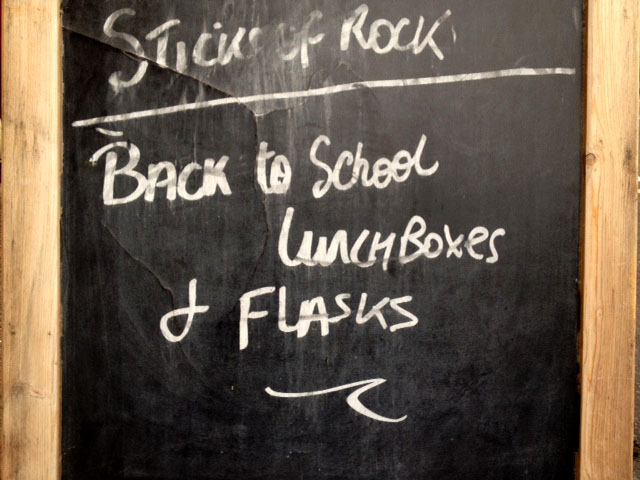 Sticks of Rock
Back to School
LunchBoxes
& Flasks